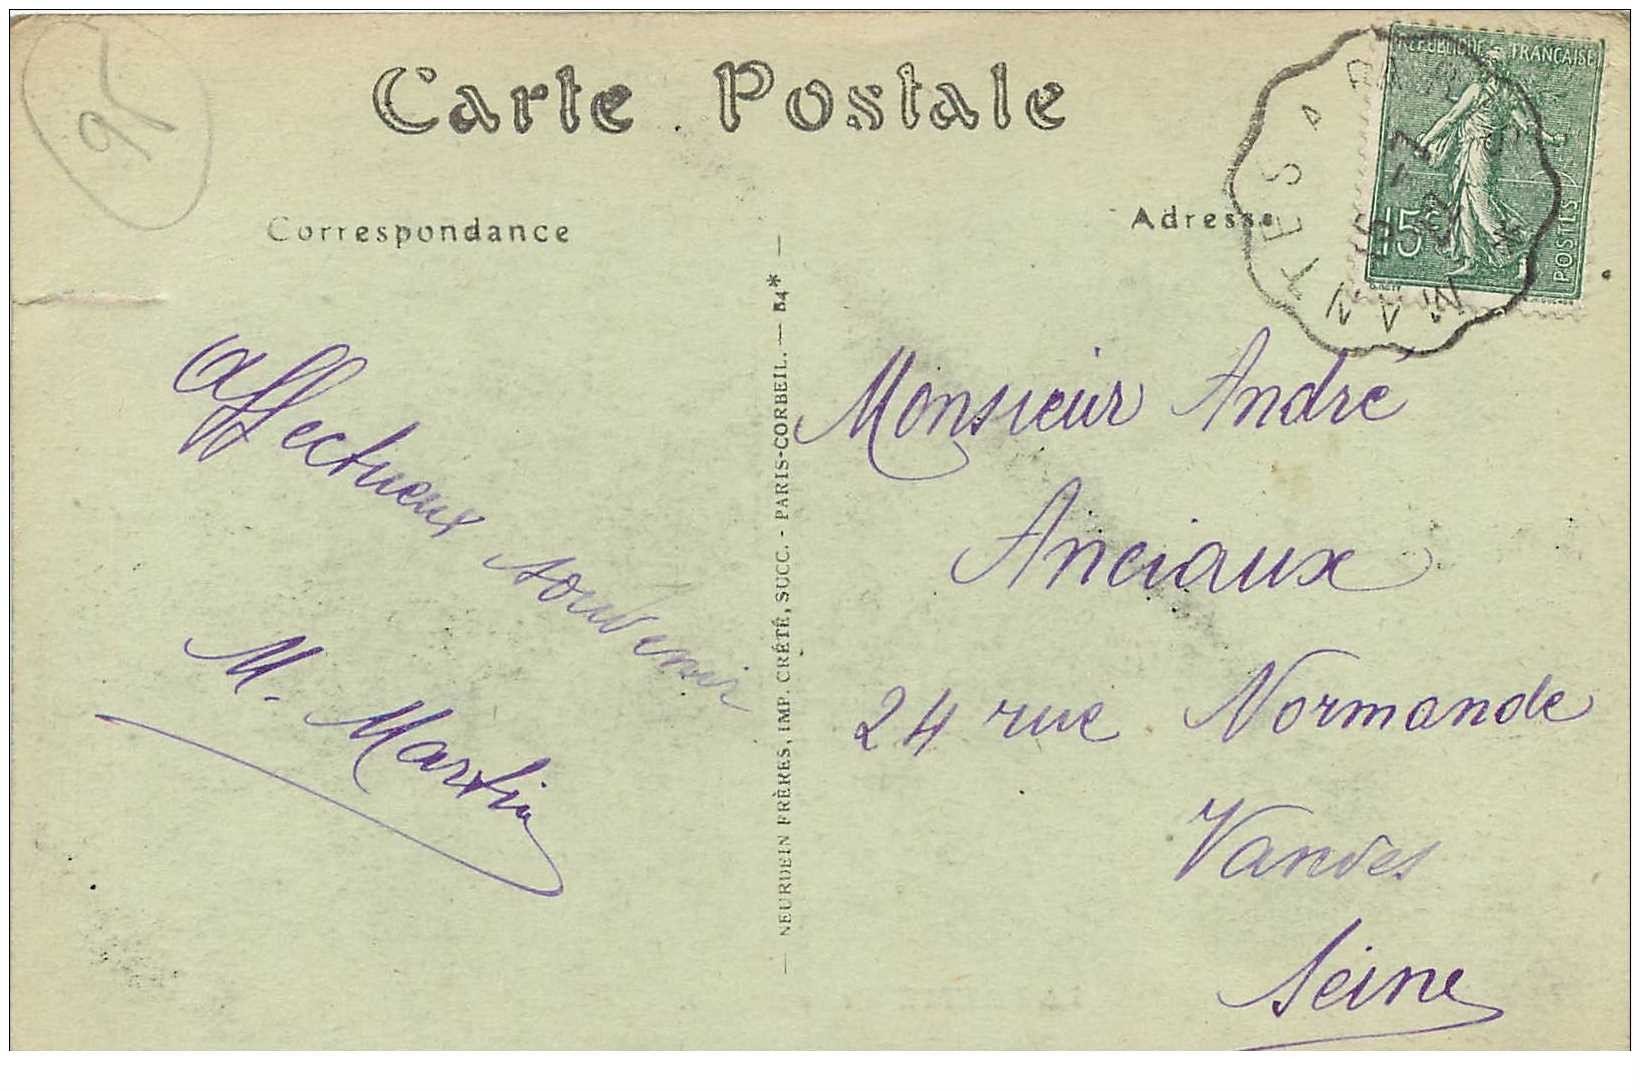 95
Carte Postale
RÉPUBLIQUE FRANÇAISE
15c
POSTES
NANTES A
Correspondance
Adresse
NEURDEIN FRÈRES, IMP. CRÉTÉ, SUCC. - PARIS-CORBEIL. — 54*
affectueux souvenir
M. Martin
Monsieur André
Anciaux
24 rue Normande
Vanves
Seine